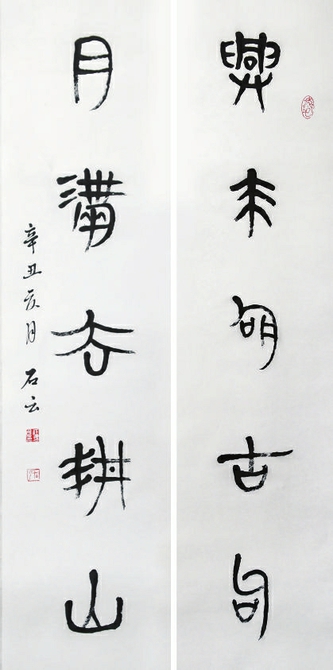 興來明古句
月滿去耕山
辛丑亥月 石云